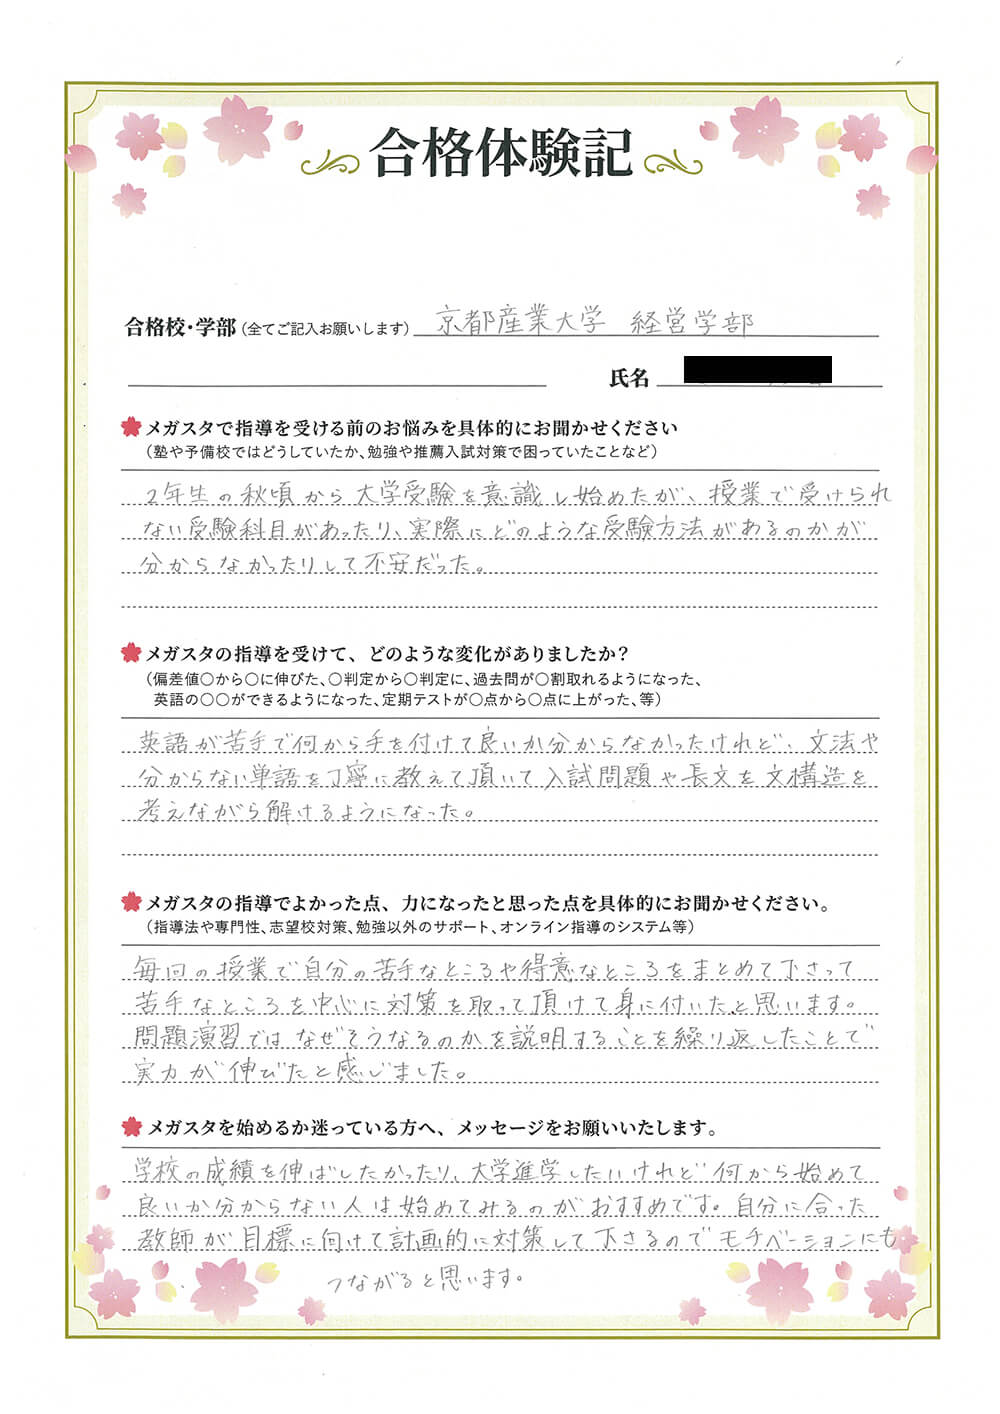 合格体験記
合格校・学部（全てご記入お願いします） 京都産業大学 経営学部
氏名
メガスタで指導を受ける前のお悩みを具体的にお聞かせください
（塾や予備校ではどうしていたか、勉強や推薦入試対策で困っていたことなど）
2年生の秋頃から大学受験を意識し始めたが、授業で受けられ
ない受験科目があったり、実際にどのような受験方法があるのかが
分からなかったりして不安だった。
メガスタの指導を受けて、どのような変化がありましたか？
（偏差値〇から〇に伸びた、〇判定から〇判定に、過去問が〇割取れるようになった、
英語の〇〇ができるようになった、定期テストが〇点から〇点に上がった、等）
英語が苦手で何から手を付けて良いか分からなかったけれど、文法や
分からない単語を丁寧に教えて頂いて入試問題や長文を文構造を
考えながら解けるようになった。
メガスタの指導でよかった点、力になったと思った点を具体的にお聞かせください。
（指導法や専門性、志望校対策、勉強以外のサポート、オンライン指導のシステム等）
毎回の授業で自分の苦手なところや得意なところをまとめて下さって
苦手なところを中心に対策を取って頂けて身に付いたと思います。
問題演習ではなぜそうなるのかを説明することを繰り返したことで
実力が伸びたと感じました。
メガスタを始めるか迷っている方へ、メッセージをお願いいたします。
学校の成績を伸ばしたかったり、大学進学したいけれど何から始めて
良いか分からない人は始めてみるのがおすすめです。自分に合った
教師が目標に向けて計画的に対策して下さるのでモチベーションにも
つながると思います。